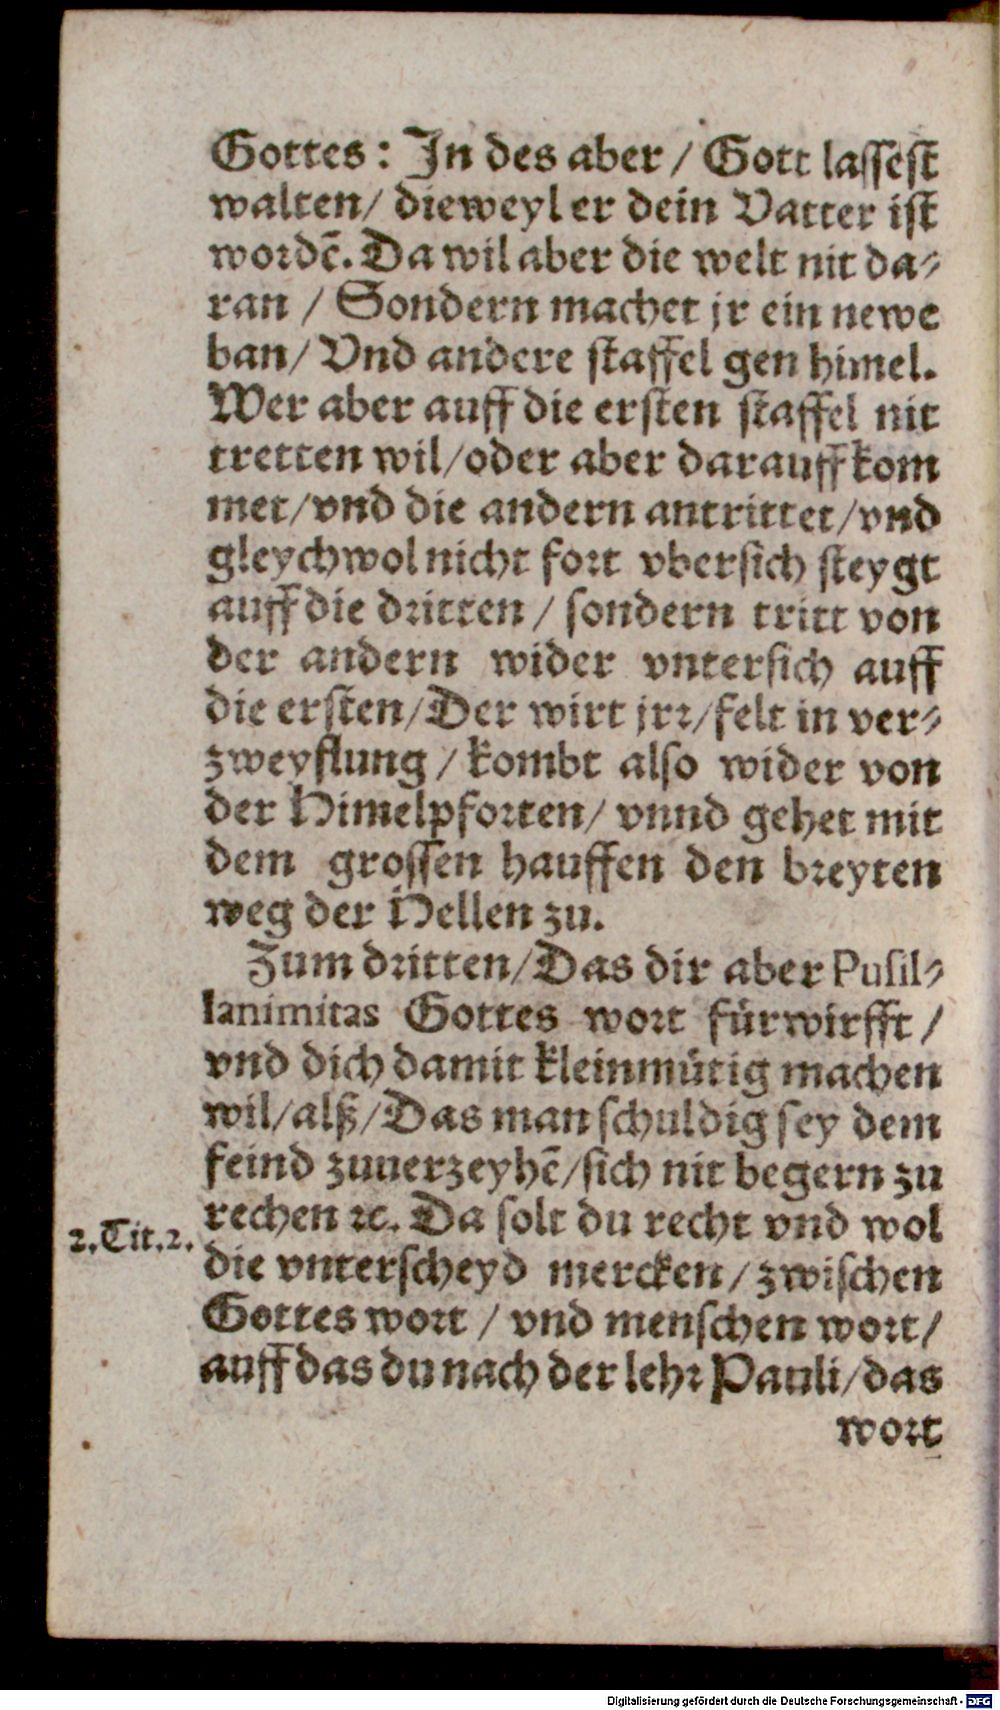 Gottes: In des aber / Gott lassest
walten/ dieweyl er dein Vatter ist
wordē. Da wil aber die welt nit da-
ran / Sondern machet jr ein newe
ban/ Vnd andere staffel gen himel.
Wer aber auff die ersten staffel nit
tretten wil/oder aber darauff kom
met/vnd die andern antrittet/vnd
gleychwol nicht fort vbersich steygt
auff die dritten / sondern tritt von
der andern wider vntersich auff
die ersten/Der wirt jrr/felt in ver-
zweyflung / kombt also wider von
der Himelpforten/ vnnd gehet mit
dem grossen hauffen den breyten
weg der Hellen zu.
Zum dritten/Das dir aber Pusil-
lanimitas Gottes wort fürwirfft /
vnd dich damit kleinmütig machen
wil/alß/Das man schuldig sey dem
feind zuuerzeyhē/sich nit begern zu
rechen ꝛc. Da solt du recht vnd wol
2.Tit.2.
die vnterscheyd mercken/zwischen
Gottes wort / vnd menschen wort/
auff das du nach der lehr Pauli/das
wort
Digitalisierung gefördert durch die Deutsche Forschungsgemeinschaft - DFG